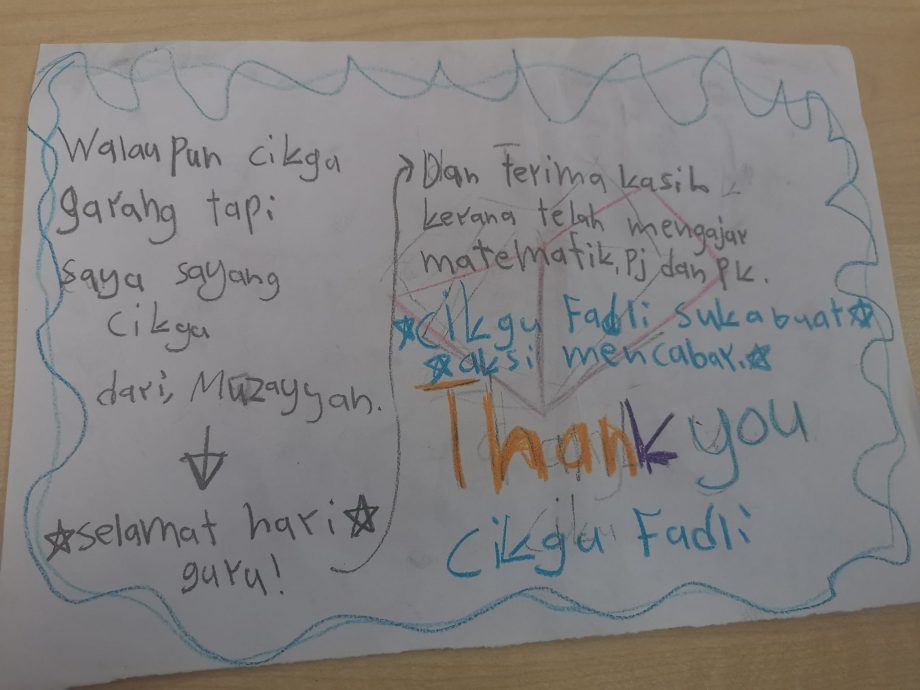 Walau pun cikgu
garang tapi
saya sayang
cikgu
dari, Muzayyah.
selamat hari
guru!
Dan Terima kasih
kerana telah mengajar
matematik, Pj dan Pk.
Cikgu Fadli suka buat
aksi mencabar.
Thank you
Cikgu Fadli